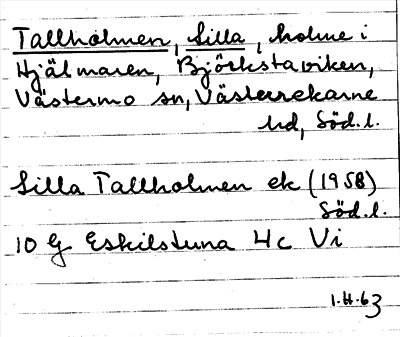 Tallholmen, Lilla, holme i
Hjälmaren, Björkstaviken,
Västermo sn, Västerrekarne
hd, Söd.l.
Lilla Tallholmen ek (1958)
Söd.l.
10 G Eskilstuna 4c Vi